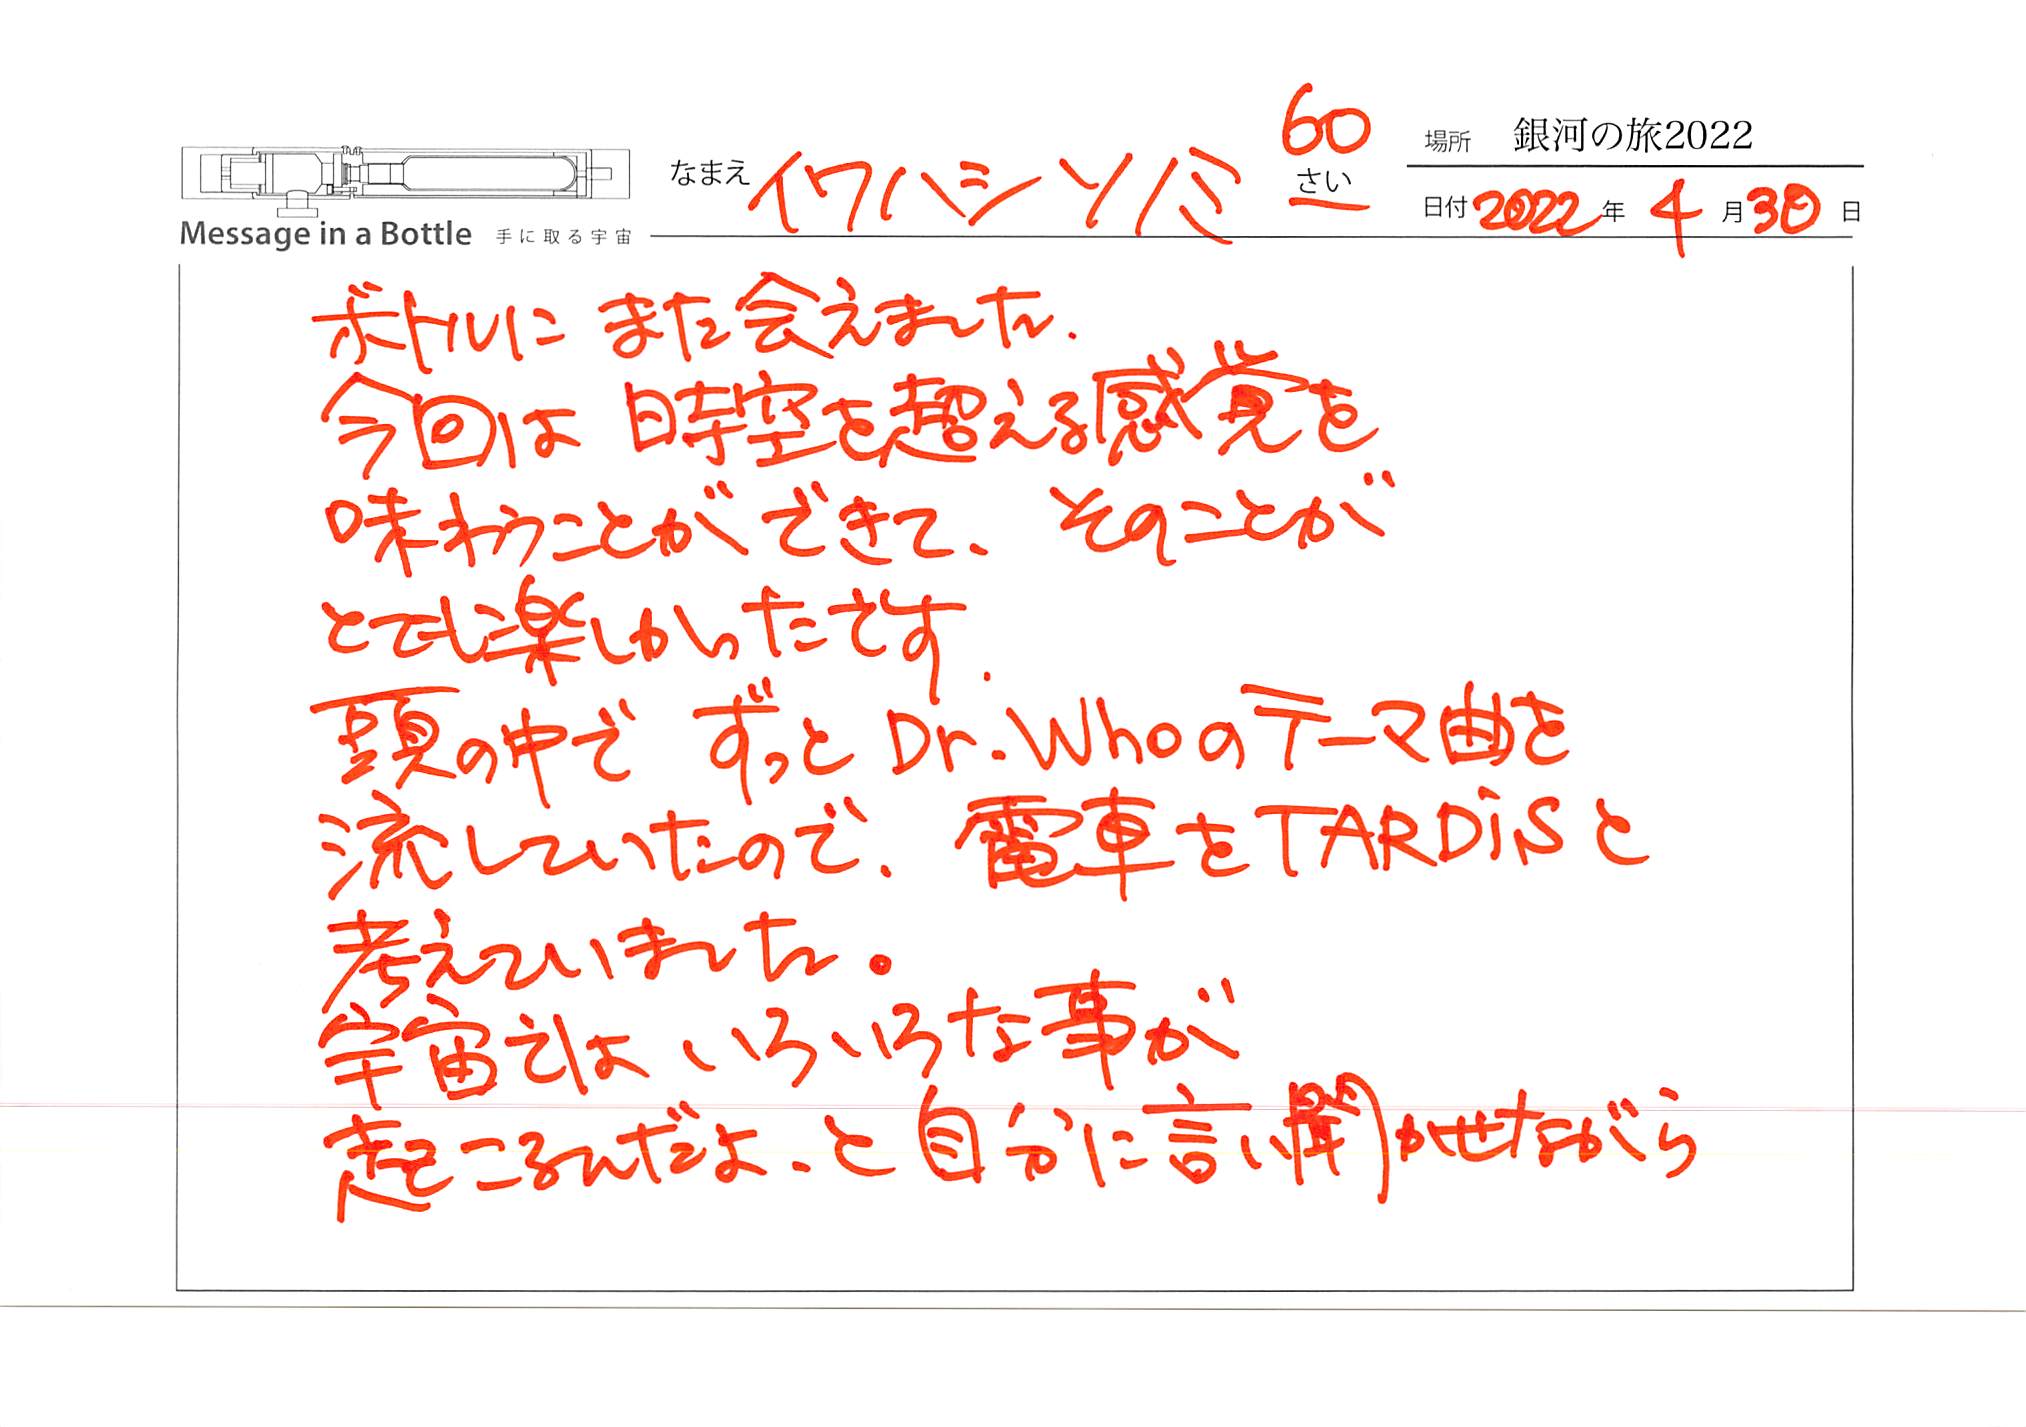 Message in a Bottle 手に取る宇宙
なまえ イワハシ ソノミ 60 さい
場所 銀河の旅2022
日付 2022 年 4 月 30 日
ボトルに また会えました.
今回は 時空を超える感覚を
味わうことができて、 そのことが
とても楽しかったです.
頭の中で ずっと Dr.Whoのテーマ曲を
流していたので、 電車をTARDiSと
考えていました。
宇宙では いろいろな事が
起こるんだよ、と 自分に言い聞かせながら